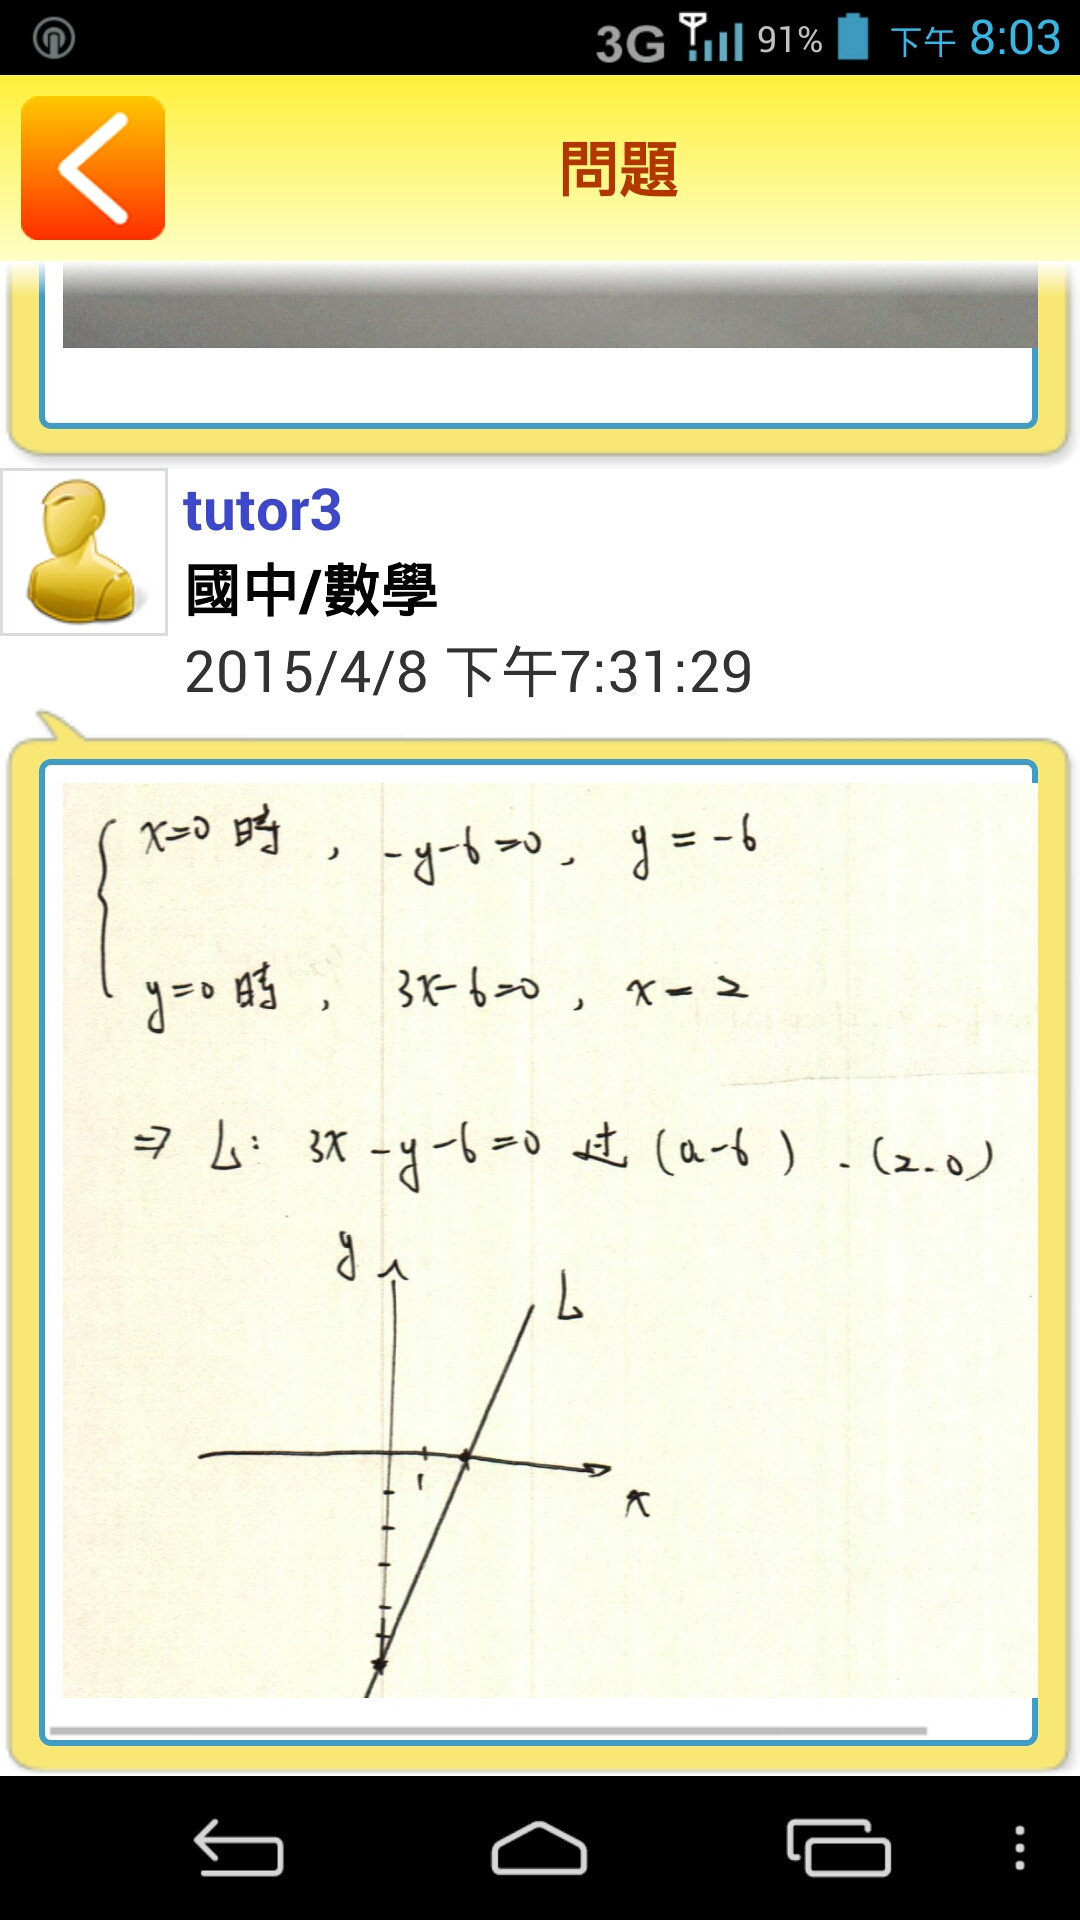 3G 91% 下午 8:03
問題
tutor3
國中/數學
2015/4/8 下午7:31:29
x=0 時 , -y-6=0 , y = -6
y=0 時 , 3x-6=0 , x = 2
⇒ L: 3x-y-6=0 过 (0,-6) . (2.0)
y
L
1
x